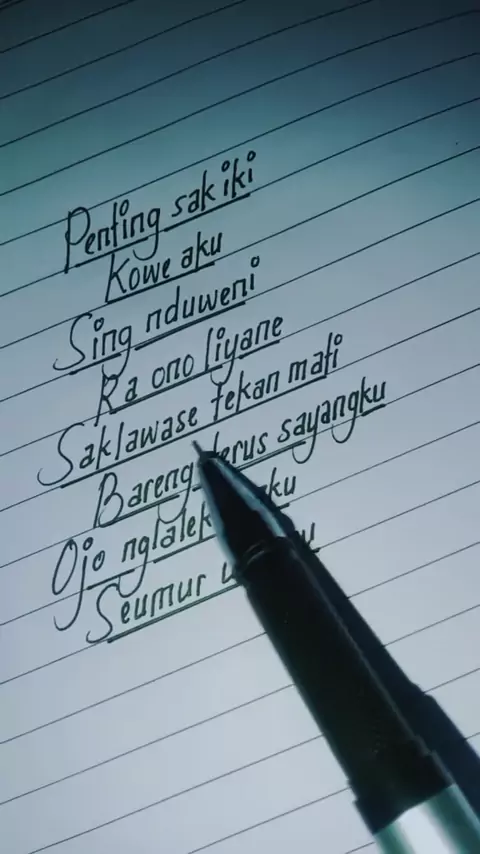 Penting sak iki
Kowe aku
Sing nduweni
Ra ono liyane
Saklawase tekan mati
Bareng terus sayangku
Ojo nglalek
Seumur